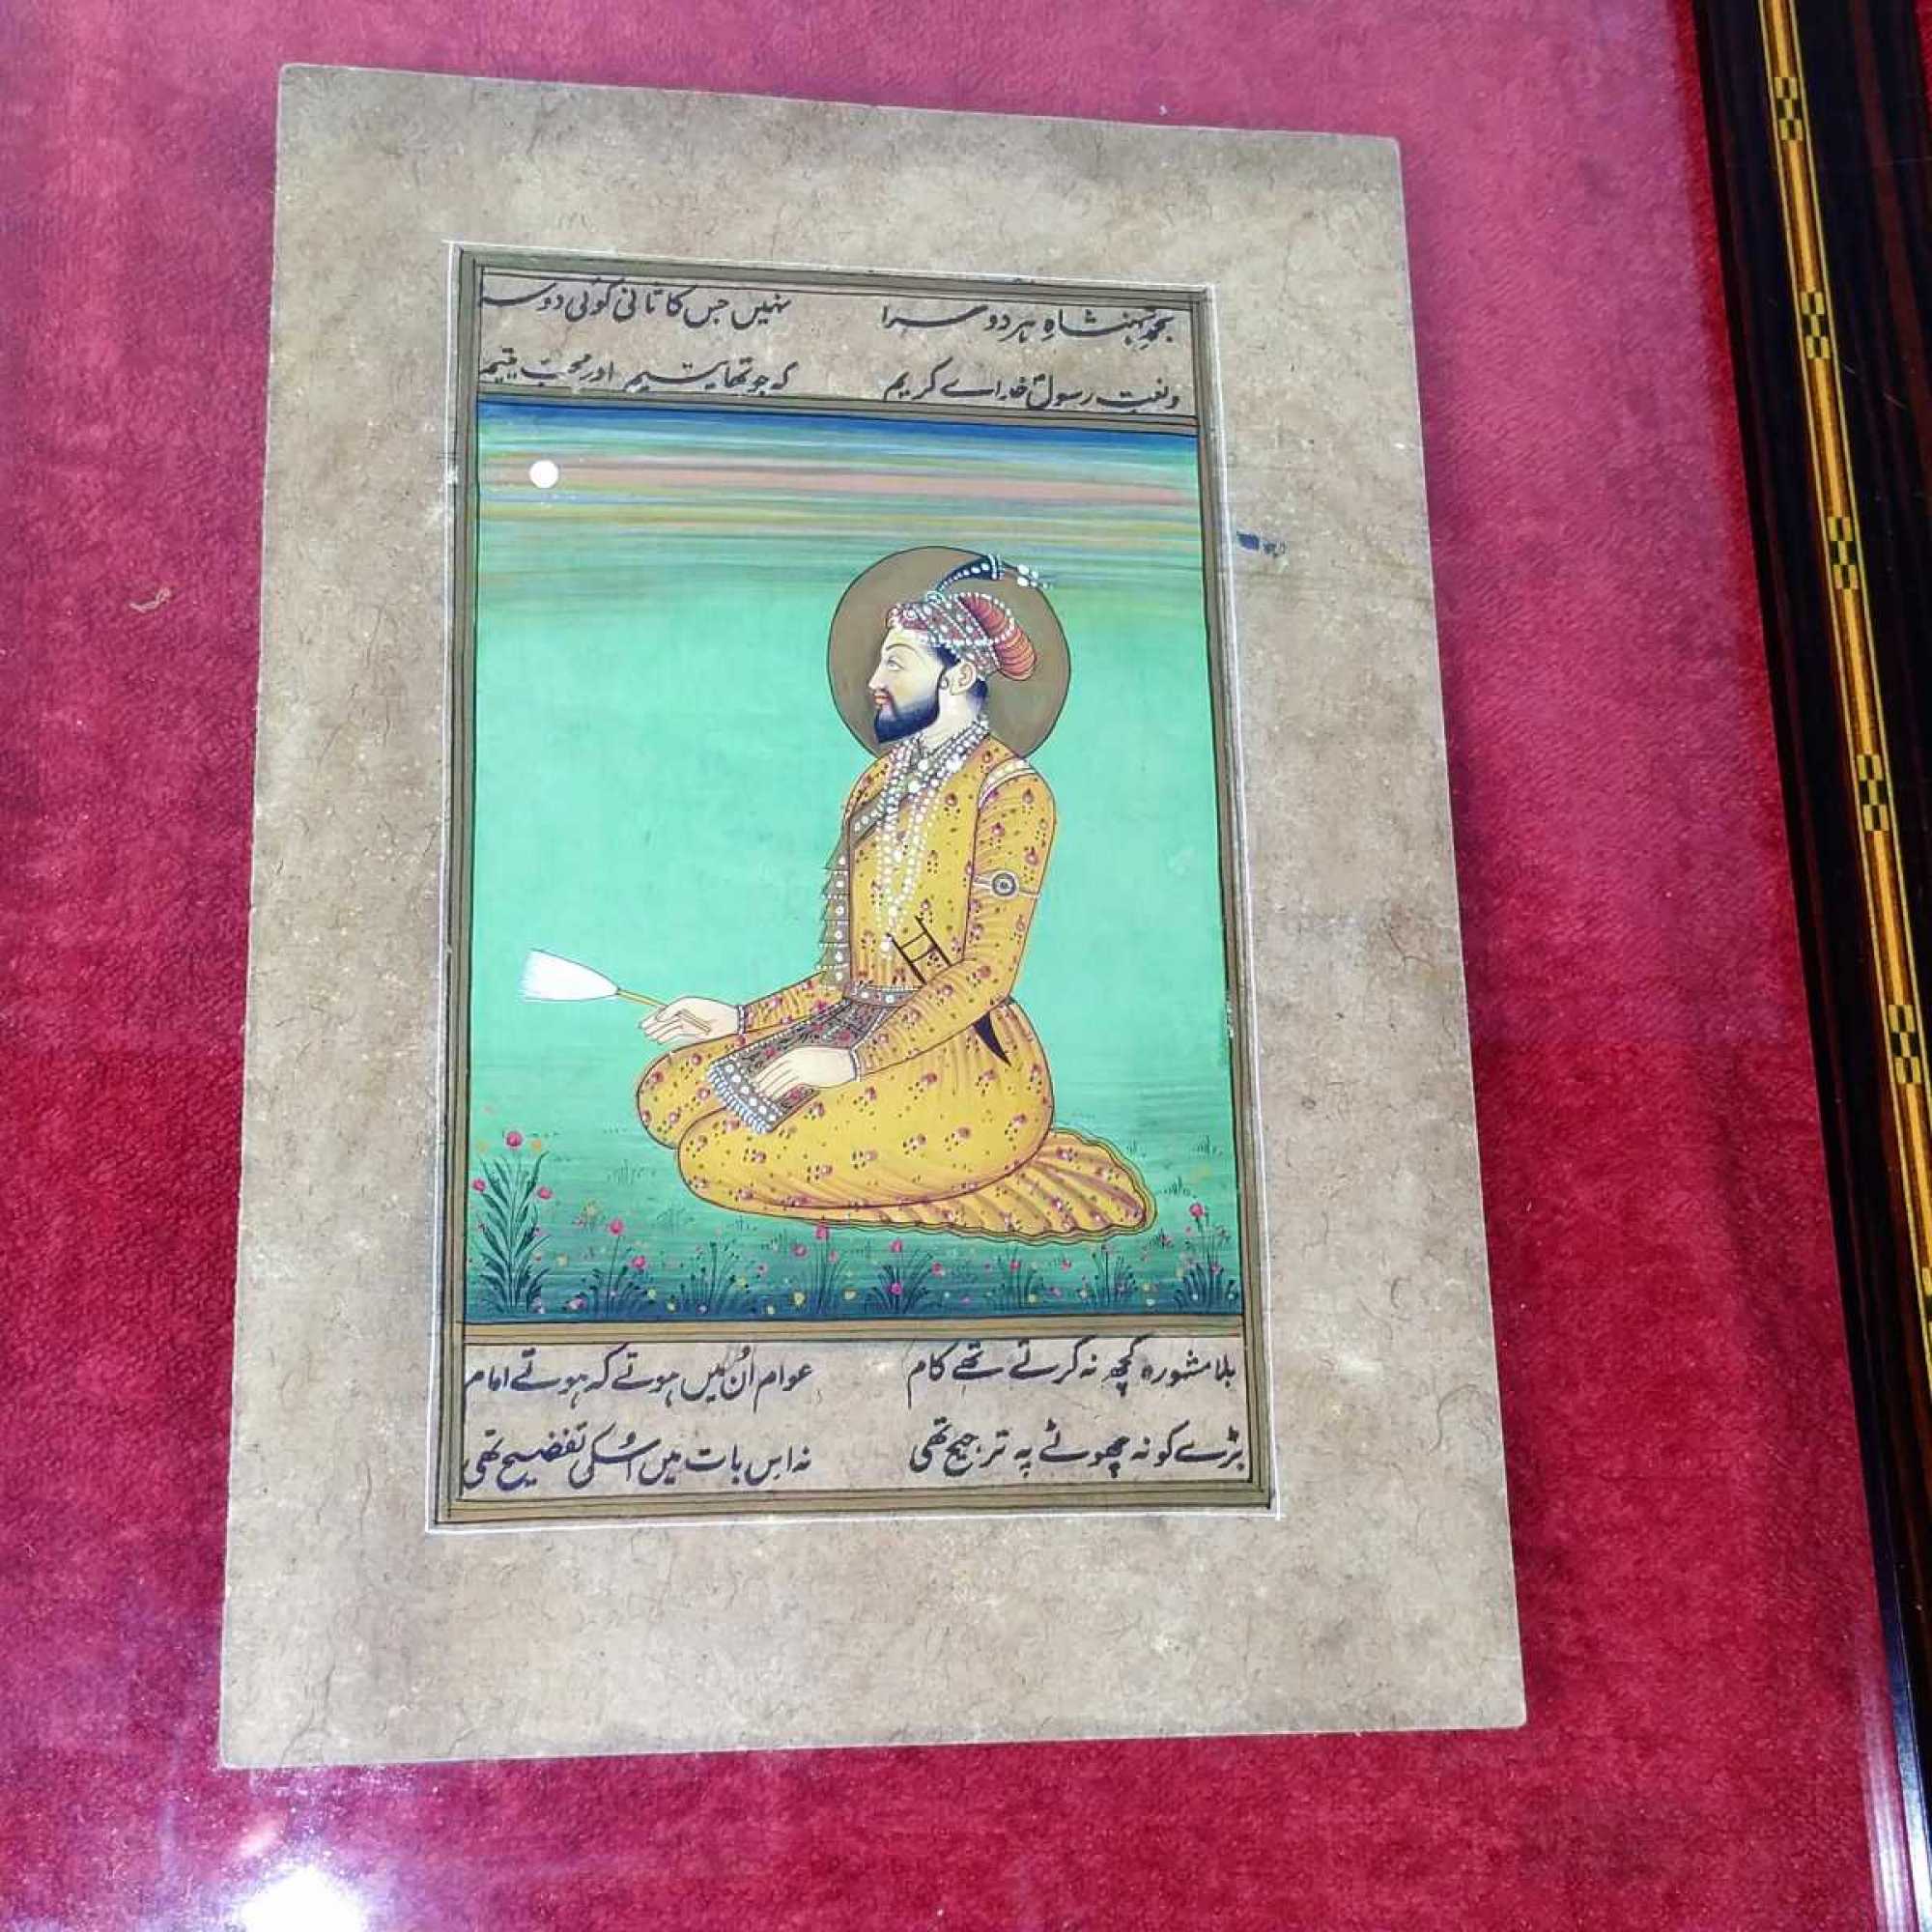 بحمدِ شہنشاہِ ہر دو سرا نہیں جس کا ثانی کوئی دوسر
و نعت رسولِؐ خداے کریم کہ جو تھا یتیم اور محبّ یتیم
بلا مشورہ کچھ نہ کرتے تھے کام عوام اُن میں ہوتے کہ ہوتے امام
بڑے کو نہ چھوٹے پہ ترجیح تھی نہ اس بات میں اُسکی تفضیح تھی